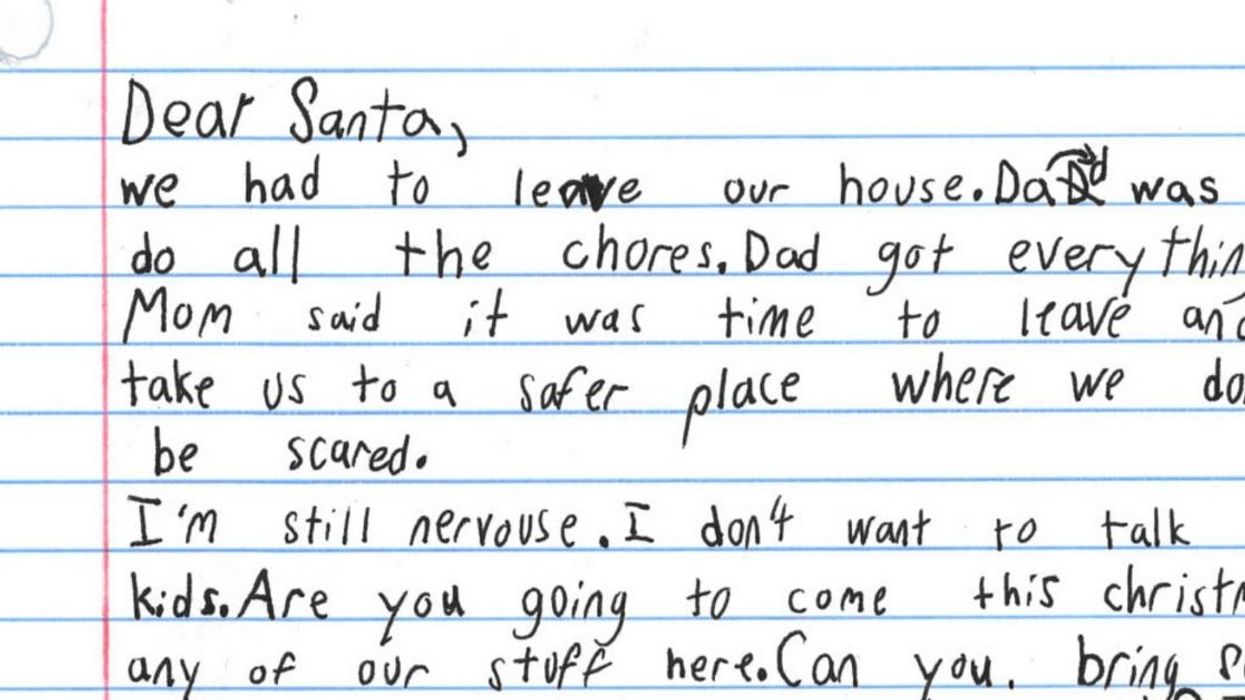 Dear Santa,
we had to leave our house.Dad was
do all the chores.Dad got everythin
Mom said it was time to leave and
take us to a safer place where we do
be scared.
I'm still nervouse.I don't want to talk
kids.Are you going to come this christm
any of our stuff here.Can you. bring s